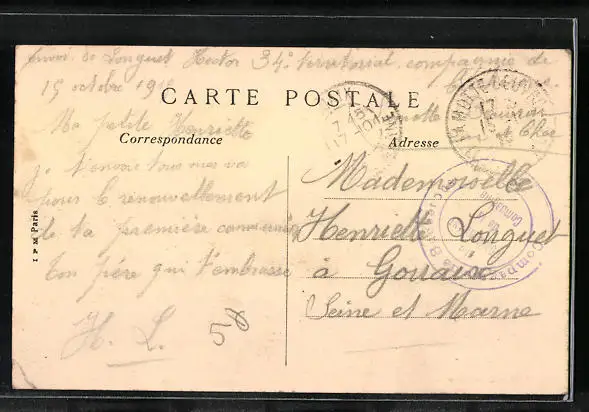 Envoi de Longuet Hector 34e territorial compagnie de
15 octobre 191
CARTE POSTALE
Correspondance
Adresse
Ma petite Henriette
je t'envoie tous mes
pour le renouvellement
de ta première communion
Ton père qui t'embrasse
H. L.
58
Mademoiselle
Henriette Longuet
à Gouaix
Seine et Marne
I P M Paris